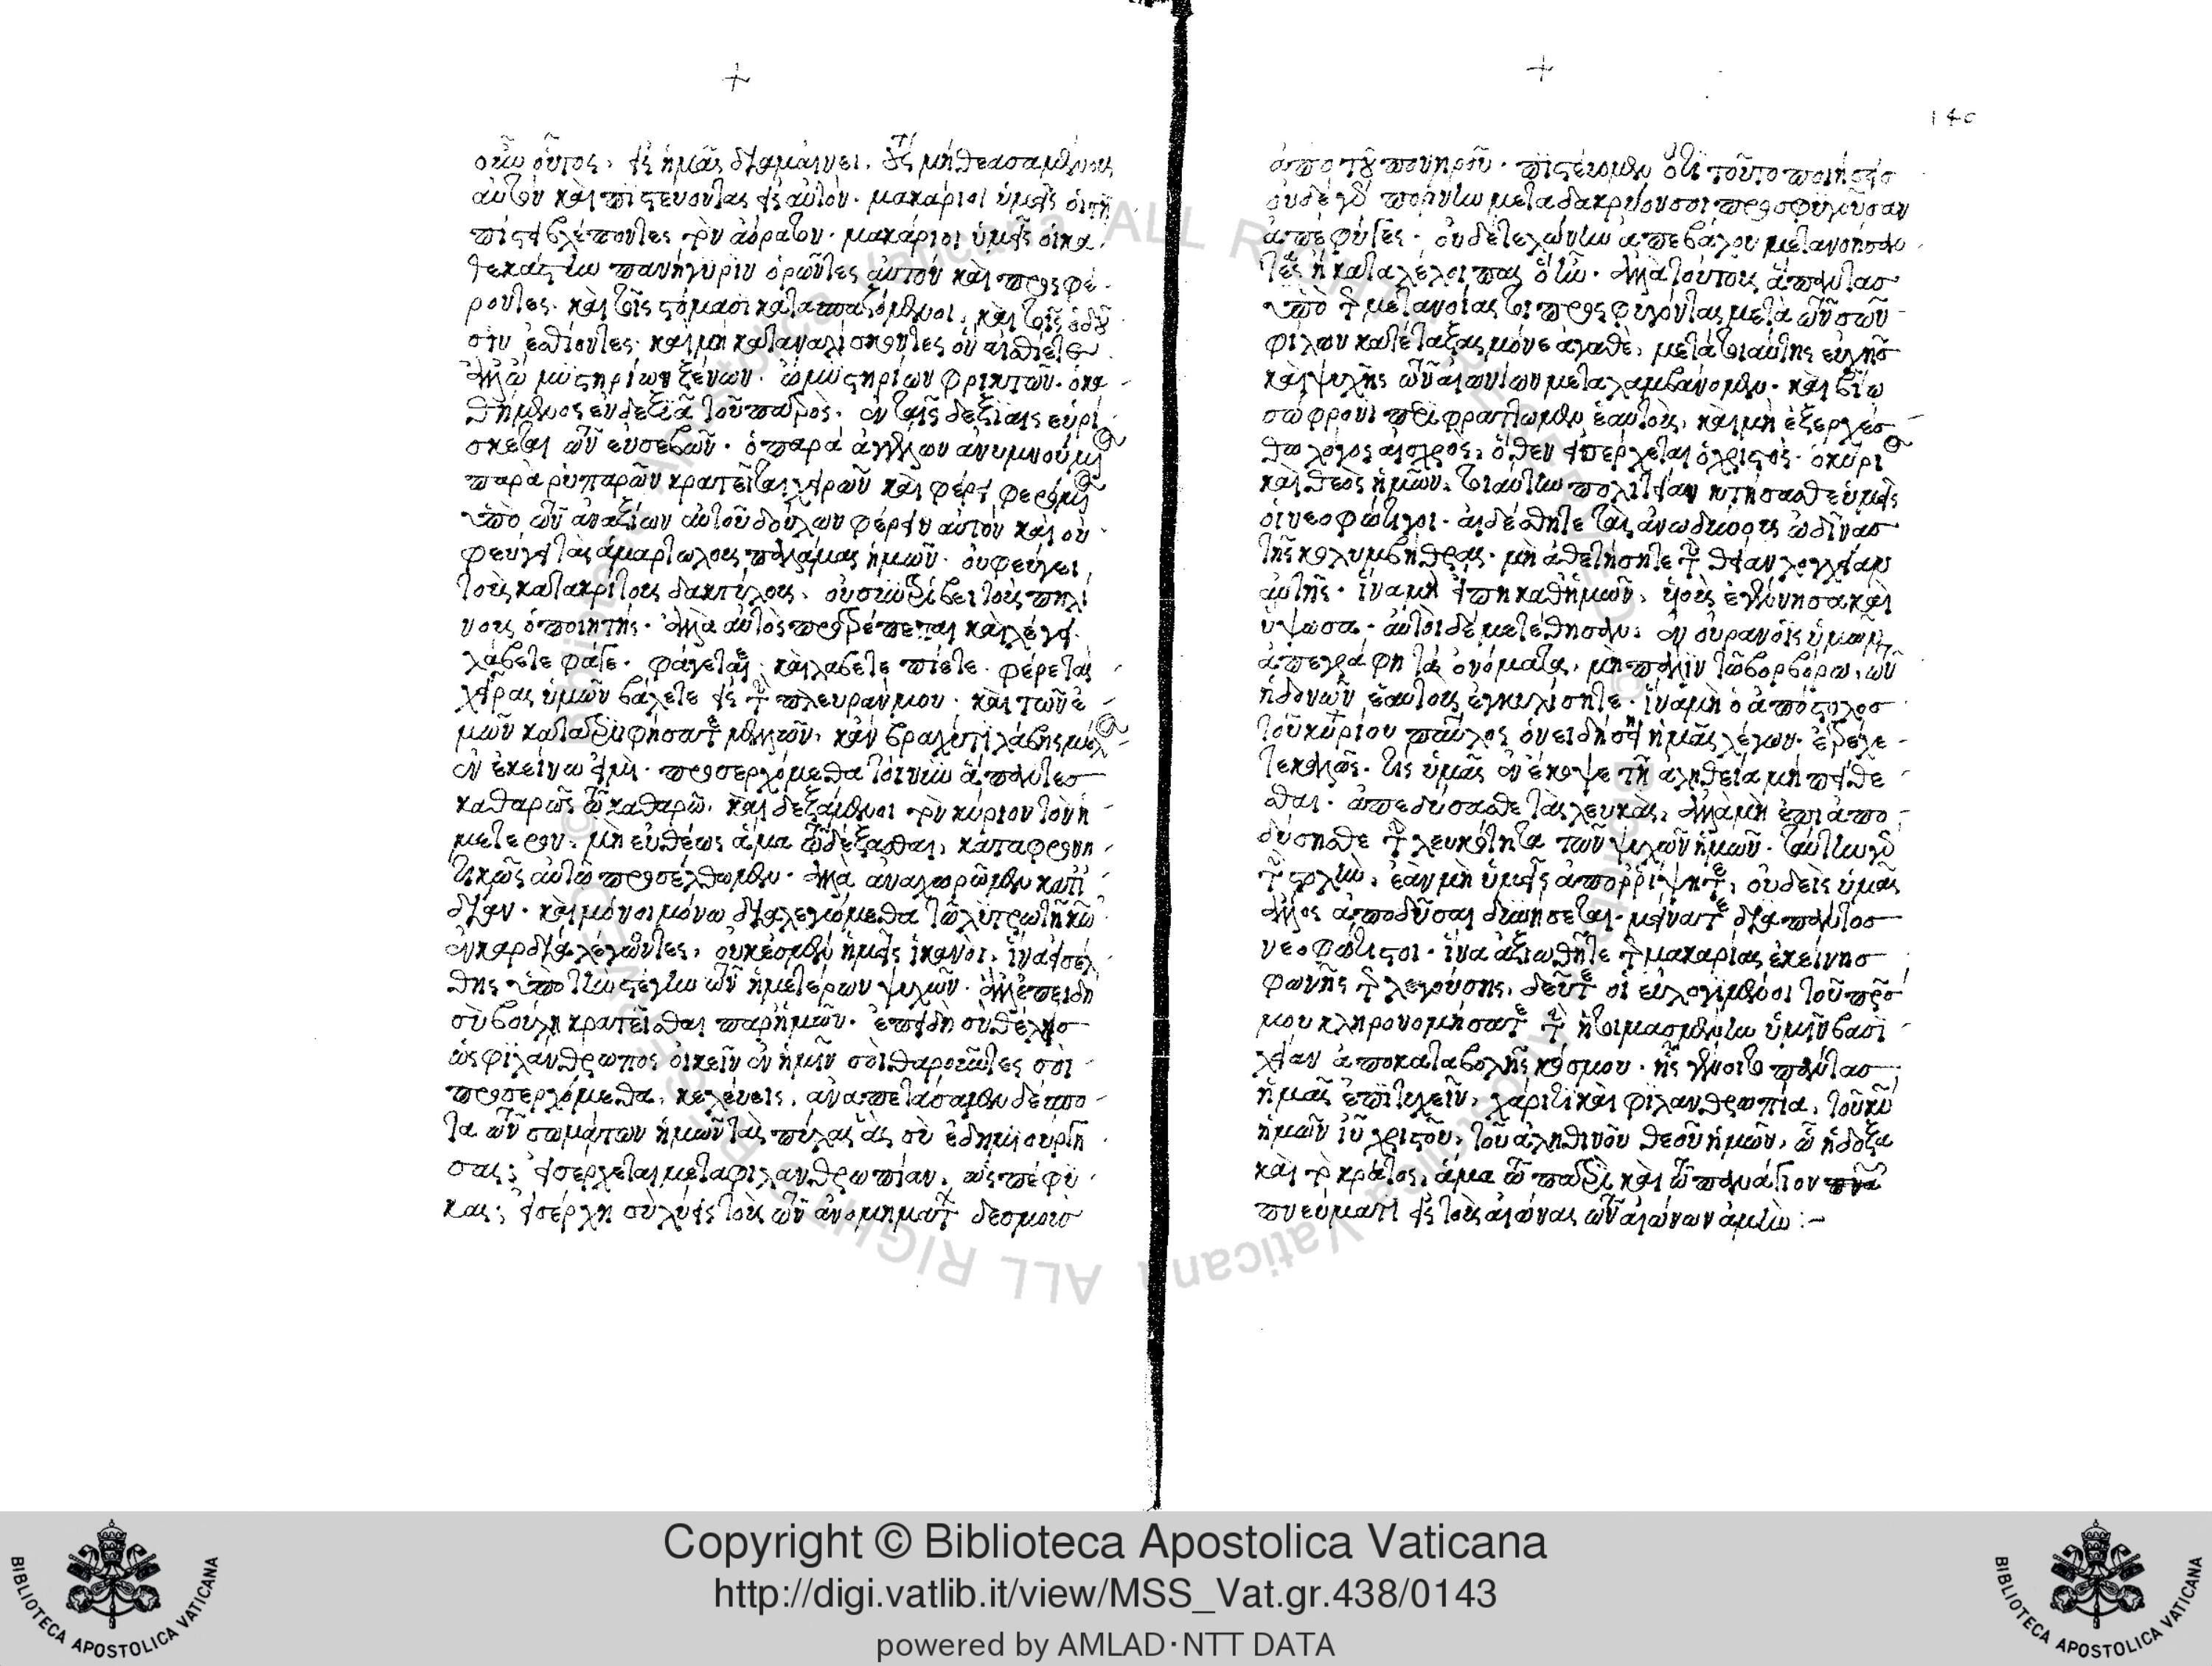 οὖν οὗτος, εἰς ἡμᾶς διαμαίνει. τοὺς μὴ θεασαμένους
αὐτὸν καὶ πιστεύοντας εἰς αὐτόν. μακάριοι ὑμεῖς οἱ τῇ
πίστει βλέποντες τὸν ἀόρατον. μακάριοι ὑμεῖς οἱ κα
θεκάστην πανήγυριν ὁρῶντες αὐτὸν καὶ προσφέ
ροντες. καὶ τοῖς στόμασι κατασπαζόμενοι, καὶ τοῖς ὀδοῦ
σιν ἐσθίοντες. καὶ μὴ καταναλίσκοντες ὃν αἰσθίετε
ἀλλ' ὦ μυστηρίων ξένων. ὦ μυστηρίων φρικτῶν. ὁ κα
θήμενος ἐν δεξιᾷ τοῦ πατρὸς. ἐν ταῖς δεξιαῖς εὑρί
σκεται τῶν εὐσεβῶν. ὁ παρὰ ἀγγέλων ἀνυμνούμενος
παρὰ ῥυπαρῶν κρατεῖται χειρῶν καὶ φέρει φερόμενος
ὑπὸ τῶν ἀναξίων αὐτοῦ δούλων φέρειν αὐτὸν καὶ οὐ
φεύγει τὰς ἁμαρτωλοὺς παλάμας ἡμῶν. οὐ φεύγει
τοὺς κατακρίτους δακτύλους. οὐ συντρίβει τοὺς πηλί
νους ὁ ποιητής. ἀλλὰ αὐτὸς προτρέπεται καὶ λέγει.
λάβετε φάγετε. καὶ λάβετε πίετε. φέρετε τὰς
χεῖρας ὑμῶν βάλετε εἰς τὴν πλευράν μου. καὶ τῶν ἐ
μῶν κατατρυφήσατε μελῶν. κἂν βραχύ τι λάβῃς μέλος
ἐν ἐκείνῳ εἰμὶ. προσερχόμεθα τοίνυν ἅπαντες
καθαρῶς τῷ καθαρῷ. καὶ δεξάμενοι τὸν κύριον τὸν ἡ
μέτερον. μὴ εὐθέως ἅμα τῷ δέξασθαι, καταφρονη
τικῶς αὐτῷ προσέλθωμεν. ἀλλὰ ἀναχωρῶμεν κατ' ἰ
δίαν. καὶ μόνοι μόνῳ διαλεγώμεθα τῷ λυτρωτῇ ἡμῶν
ἐν καρδίᾳ λέγοντες, οὐκ ἐσμὲν ἡμεῖς ἱκανοὶ, ἵνα εἰσέλ
θῃς ὑπὸ τὴν στέγην τῶν ἡμετέρων ψυχῶν. ἀλλ' ἐπειδὴ
σὺ βούλῃ κρατεῖσθαι παρ' ἡμῶν. ἐπειδὴ σὺ θέλεις
ὡς φιλάνθρωπος οἰκεῖν ἐν ἡμῖν σοὶ θαρροῦντες σοὶ
προσερχόμεθα. κελεύεις, ἀναπετάσωμεν δέσπο
τα τῶν σωμάτων ἡμῶν τὰς πύλας ἃς σὺ ἐδημιούργη
σας; εἰσέρχεται μετὰ φιλανθρωπίαν, ὡς πέφυ
κας; εἰσέρχῃ σὺ λύεις τοὺς τῶν ἀνομημάτων δεσμοὺς
140
ἀπὸ τοῦ πονηροῦ. πιστεύομεν ὅτι τοῦτο ποιήσεις
οὐδὲ γὰρ πόρνην μετὰ δακρύων σοι προσφυγοῦσαν
ἀπέφυγες. οὐδὲ τελώνην ἀπεβάλου μετανοήσαν
τα ἀλλὰ τούτους ἅπαντας
ὑπὸ τῆς μετανοίας σοι προσφυγόντας μετὰ τῶν σῶν
φίλων κατέταξας μόνε ἀγαθὲ. μετὰ τοιαύτης εὐχῆς
καὶ ψυχῆς τῶν αἰωνίων μεταλαμβάνομεν. καὶ βίῳ
σώφρονι περιφράττωμεν ἑαυτοὺς, καὶ μὴ ἐξερχέσ
θω λόγος αἰσχρὸς, ὅθεν εἰσέρχεται ὁ χριστός. ὁ κύριος
καὶ θεὸς ἡμῶν. τοιαύτην πολιτείαν κτήσασθε ὑμεῖς
οἱ νεοφώτιστοι. αἰδέσθητε τὰς ἀνωδύνους ὠδῖνας
τῆς κολυμβήθρας. μὴ ἀθετήσητε τὴν θείαν λοχείαν
αὐτῆς. ἵνα μὴ εἴπῃ καθ' ἡμῶν, υἱοὺς ἐγέννησα καὶ
ὕψωσα. αὐτοὶ δέ με ἠθέτησαν. ἐν οὐρανοῖς ὑμῶν
ἀπεγράφη τὰ ὀνόματα. μὴ πάλιν τῷ βορβόρῳ τῶν
ἡδονῶν ἑαυτοὺς ἐγκυλίσητε. ἵνα μὴ ὁ ἀπόστολος
τοῦ κυρίου παῦλος ὀνειδήσῃ ἡμᾶς λέγων. ἐτρέχε
τε καλῶς. τίς ὑμᾶς ἐνέκοψε τῇ ἀληθείᾳ μὴ πείθε
σθαι. ἀπεδύσασθε τὰς λευκὰς, ἀλλὰ μὴ ἔτι ἀπο
δύσησθε τὴν λευκότητα τῶν ψυχῶν ἡμῶν. ταύτην γὰρ
τὴν στολὴν, ἐὰν μὴ ὑμεῖς ἀπορρίψητε, οὐδεὶς ὑμᾶς
ἄλλος ἀποδῦσαι δυνήσεται. μείνατε διαπαντὸς
νεοφώτιστοι. ἵνα ἀξιωθῆτε τῆς μακαρίας ἐκείνης
φωνῆς τῆς λεγούσης, δεῦτε οἱ εὐλογημένοι τοῦ πρς
μου κληρονομήσατε τὴν ἡτοιμασμένην ὑμῖν βασι
λείαν ἀπὸ καταβολῆς κόσμου. ἧς γένοιτο πάντας
ἡμᾶς ἐπιτυχεῖν, χάριτι καὶ φιλανθρωπίᾳ, τοῦ κυ
ἡμῶν ιυ χριστοῦ, τοῦ ἀληθινοῦ θεοῦ ἡμῶν, ᾧ ἡ δόξα
καὶ τὸ κράτος, ἅμα τῷ πατρὶ καὶ τῷ παναγίῳ
πνεύματι εἰς τοὺς αἰῶνας τῶν αἰώνων ἀμήν :-
Copyright © Biblioteca Apostolica Vaticana
http://digi.vatlib.it/view/MSS_Vat.gr.438/0143
powered by AMLAD·NTT DATA
BIBLIOTECA APOSTOLICA VATICANA
BIBLIOTECA APOSTOLICA VATICANA